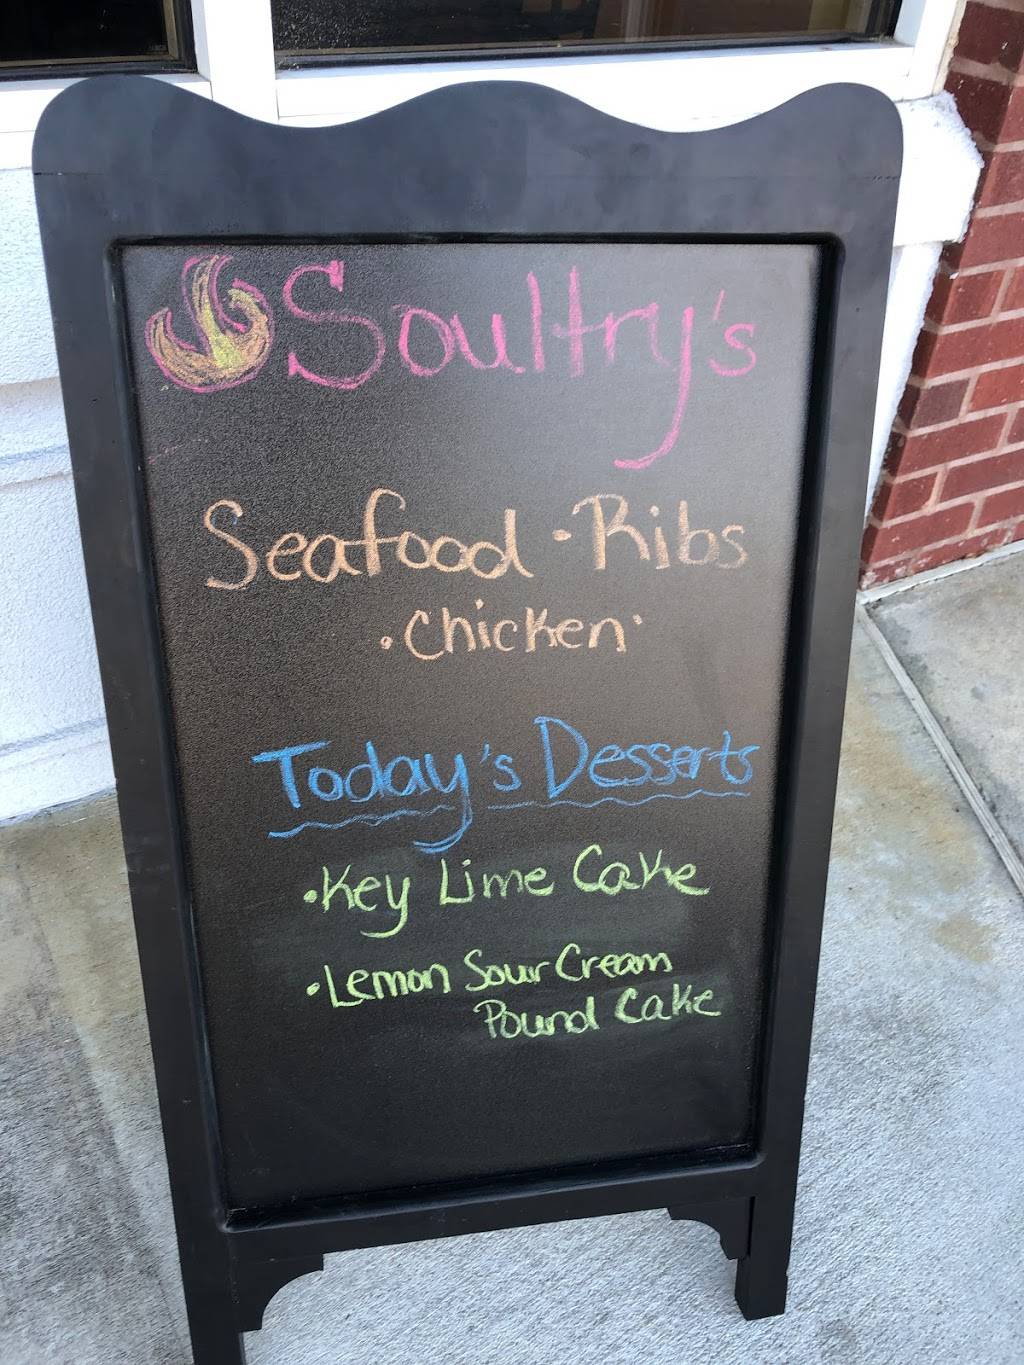 Soultry's
Seafood · Ribs
· Chicken ·
Today's Desserts
· Key Lime Cake
· Lemon Sour Cream
Pound Cake